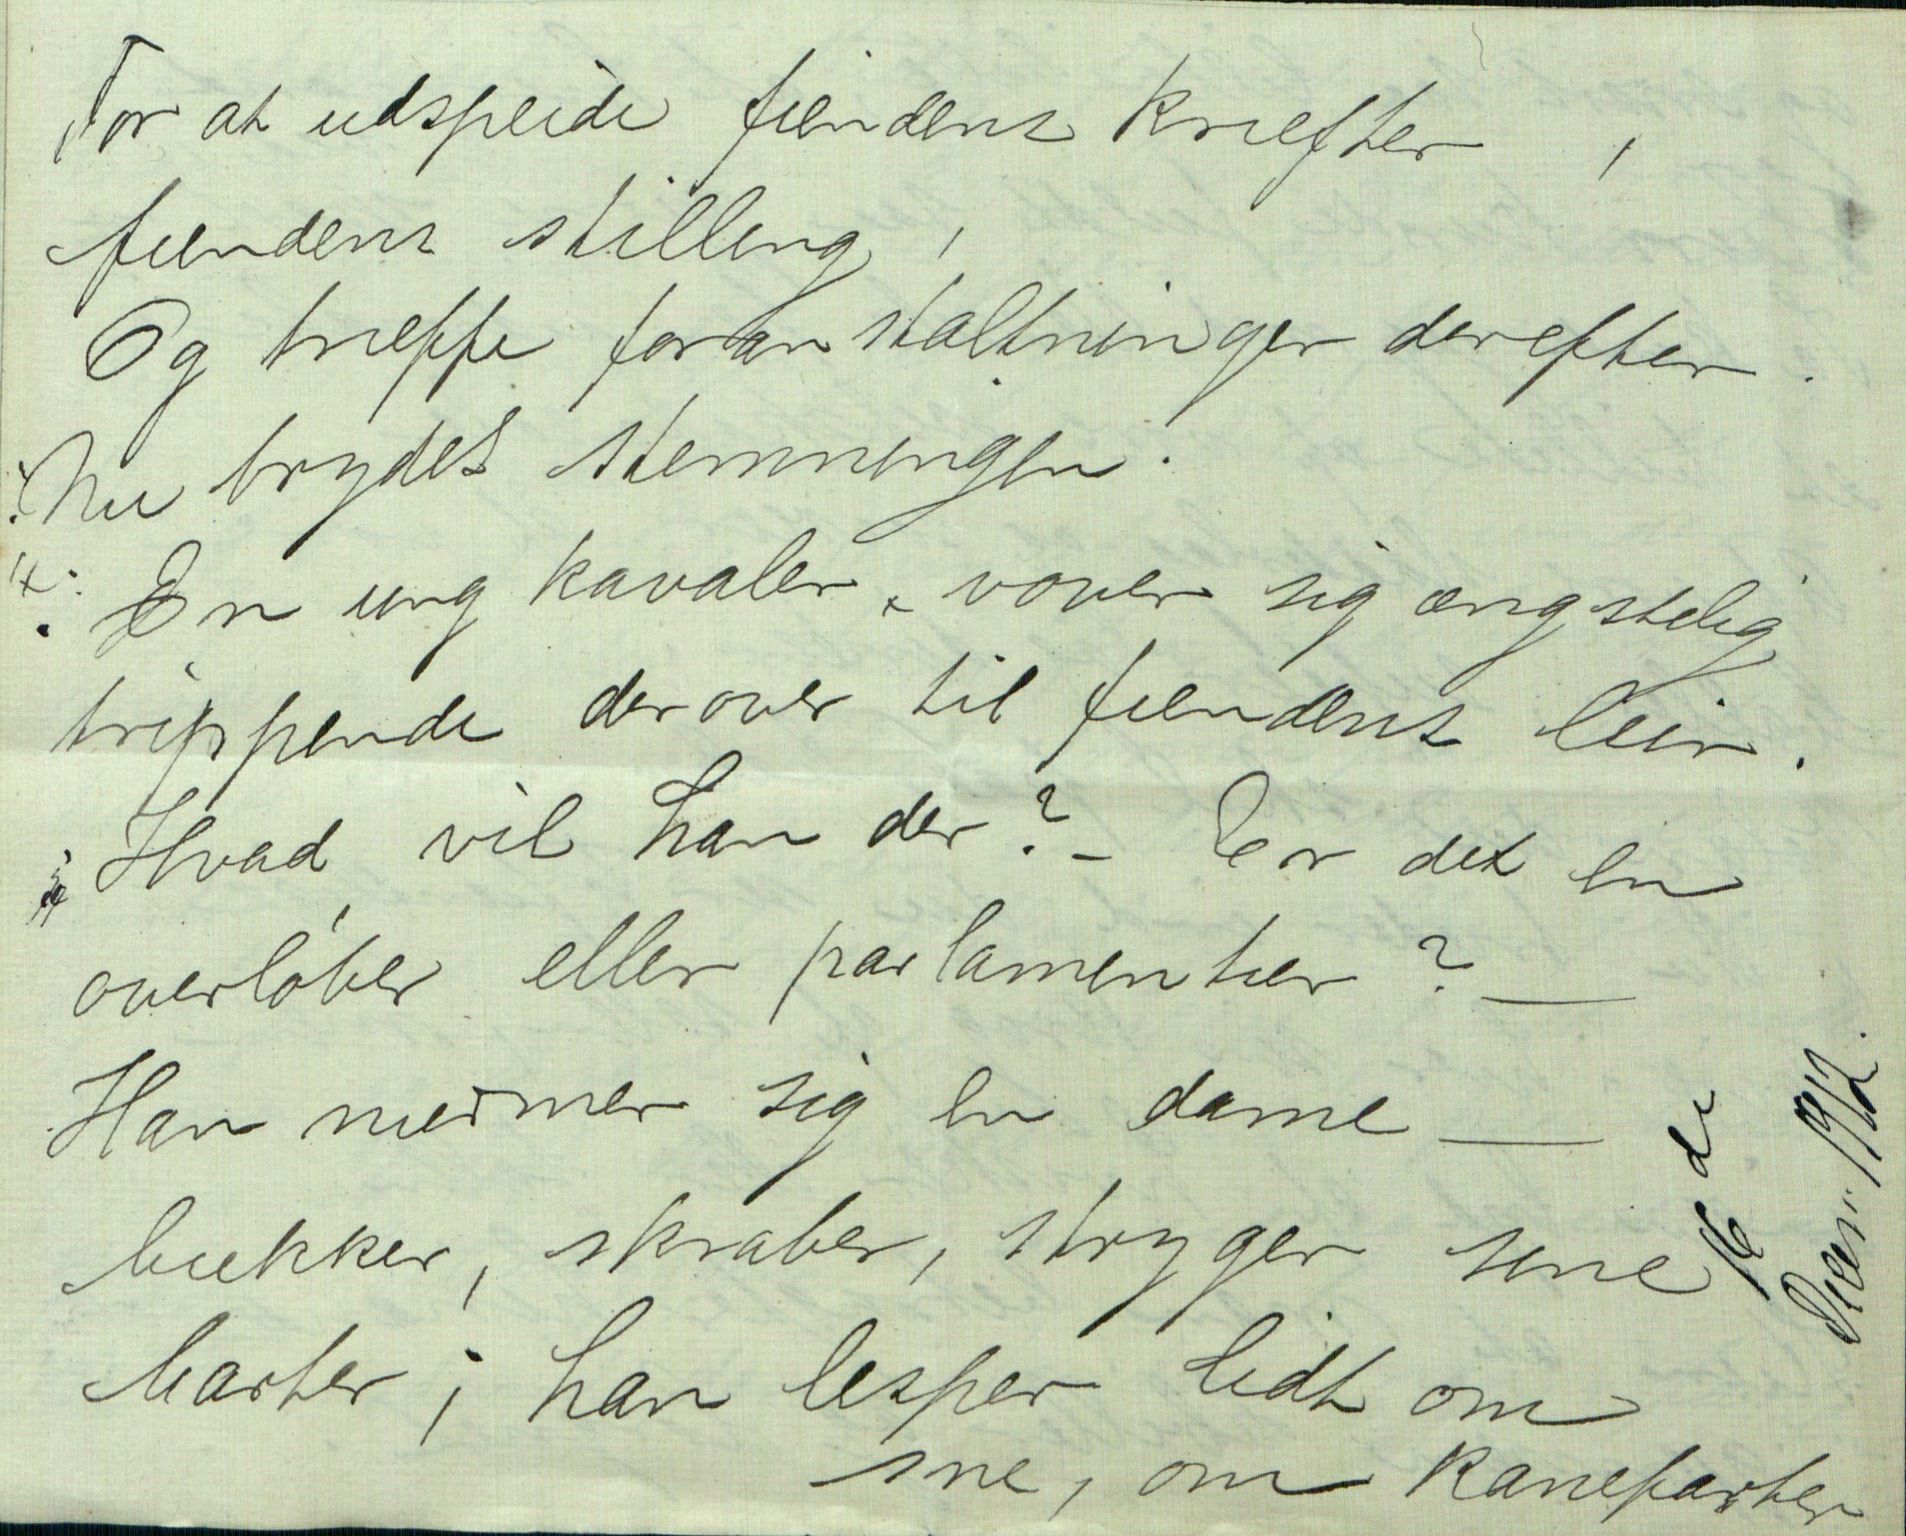 For at udspeide fiendens kræfter,
fiendens stilling,
Og træffe foranstaltninger derefter.
Nu brydes stemningen.
En ung kavaler vover sig ængstelig
trippende derover til fiendens leir.
Hvad vil han der? – Er det en
overløber eller parlamentær? —
Han nærmer sig en dame —
bukker, skraber, stryger sine
barter; han lesper lidt om
sne, om kaneparter
16 de
Decbr. 1912.